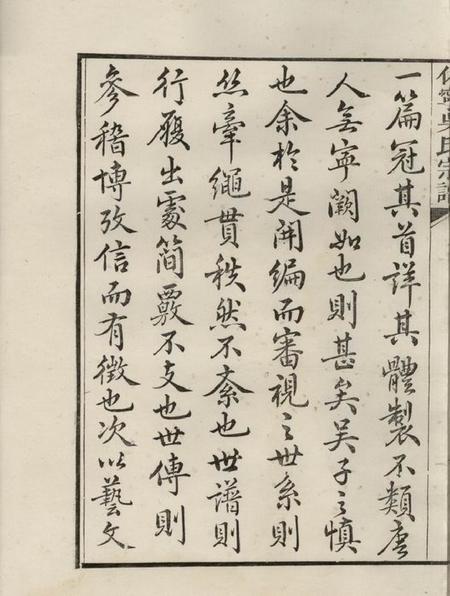 休寧吳氏宗譜
一篇冠其首詳其體製不類唐
人無寧闕如也則甚矣吴子之慎
也余於是開編而審視之世系則
丝牽繩貫秩然不紊也世譜則
行履出處簡覈不支也世傳則
參稽博攷信而有徵也次以藝文